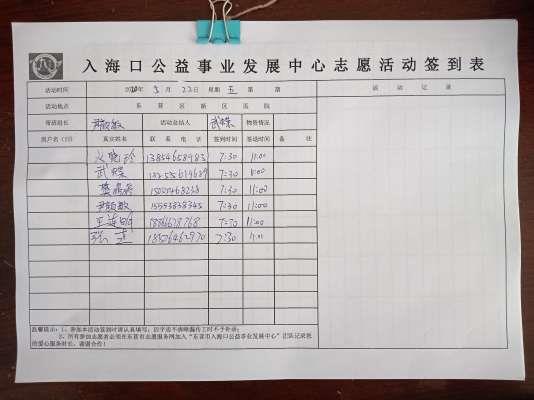 入海口公益事业发展中心志愿活动签到表
活动时间 2020年 5月 22日 星期 五 第 期 活动记录
活动地点 东营区新区医院
带班组长 尹颜敏 活动总结人 武蝶 物资情况
用户名(ID) 真实姓名 联系电话 签到时间 签退时间 备注
13854658983 7:30 11:00
武蝶 7:30 11:00
7:30 11:00
尹颜敏 15553838345 7:30 11:00
王连明 7:30 11:00
7:30 11:00
温馨提示:1、参加本活动签到时请认真填写,因字迹不清晰漏传工时不予补录;
2、所有参加志愿者必须在东营市志愿服务网加入“东营市入海口公益事业发展中心”团队记录您
的爱心服务时长,谢谢合作!